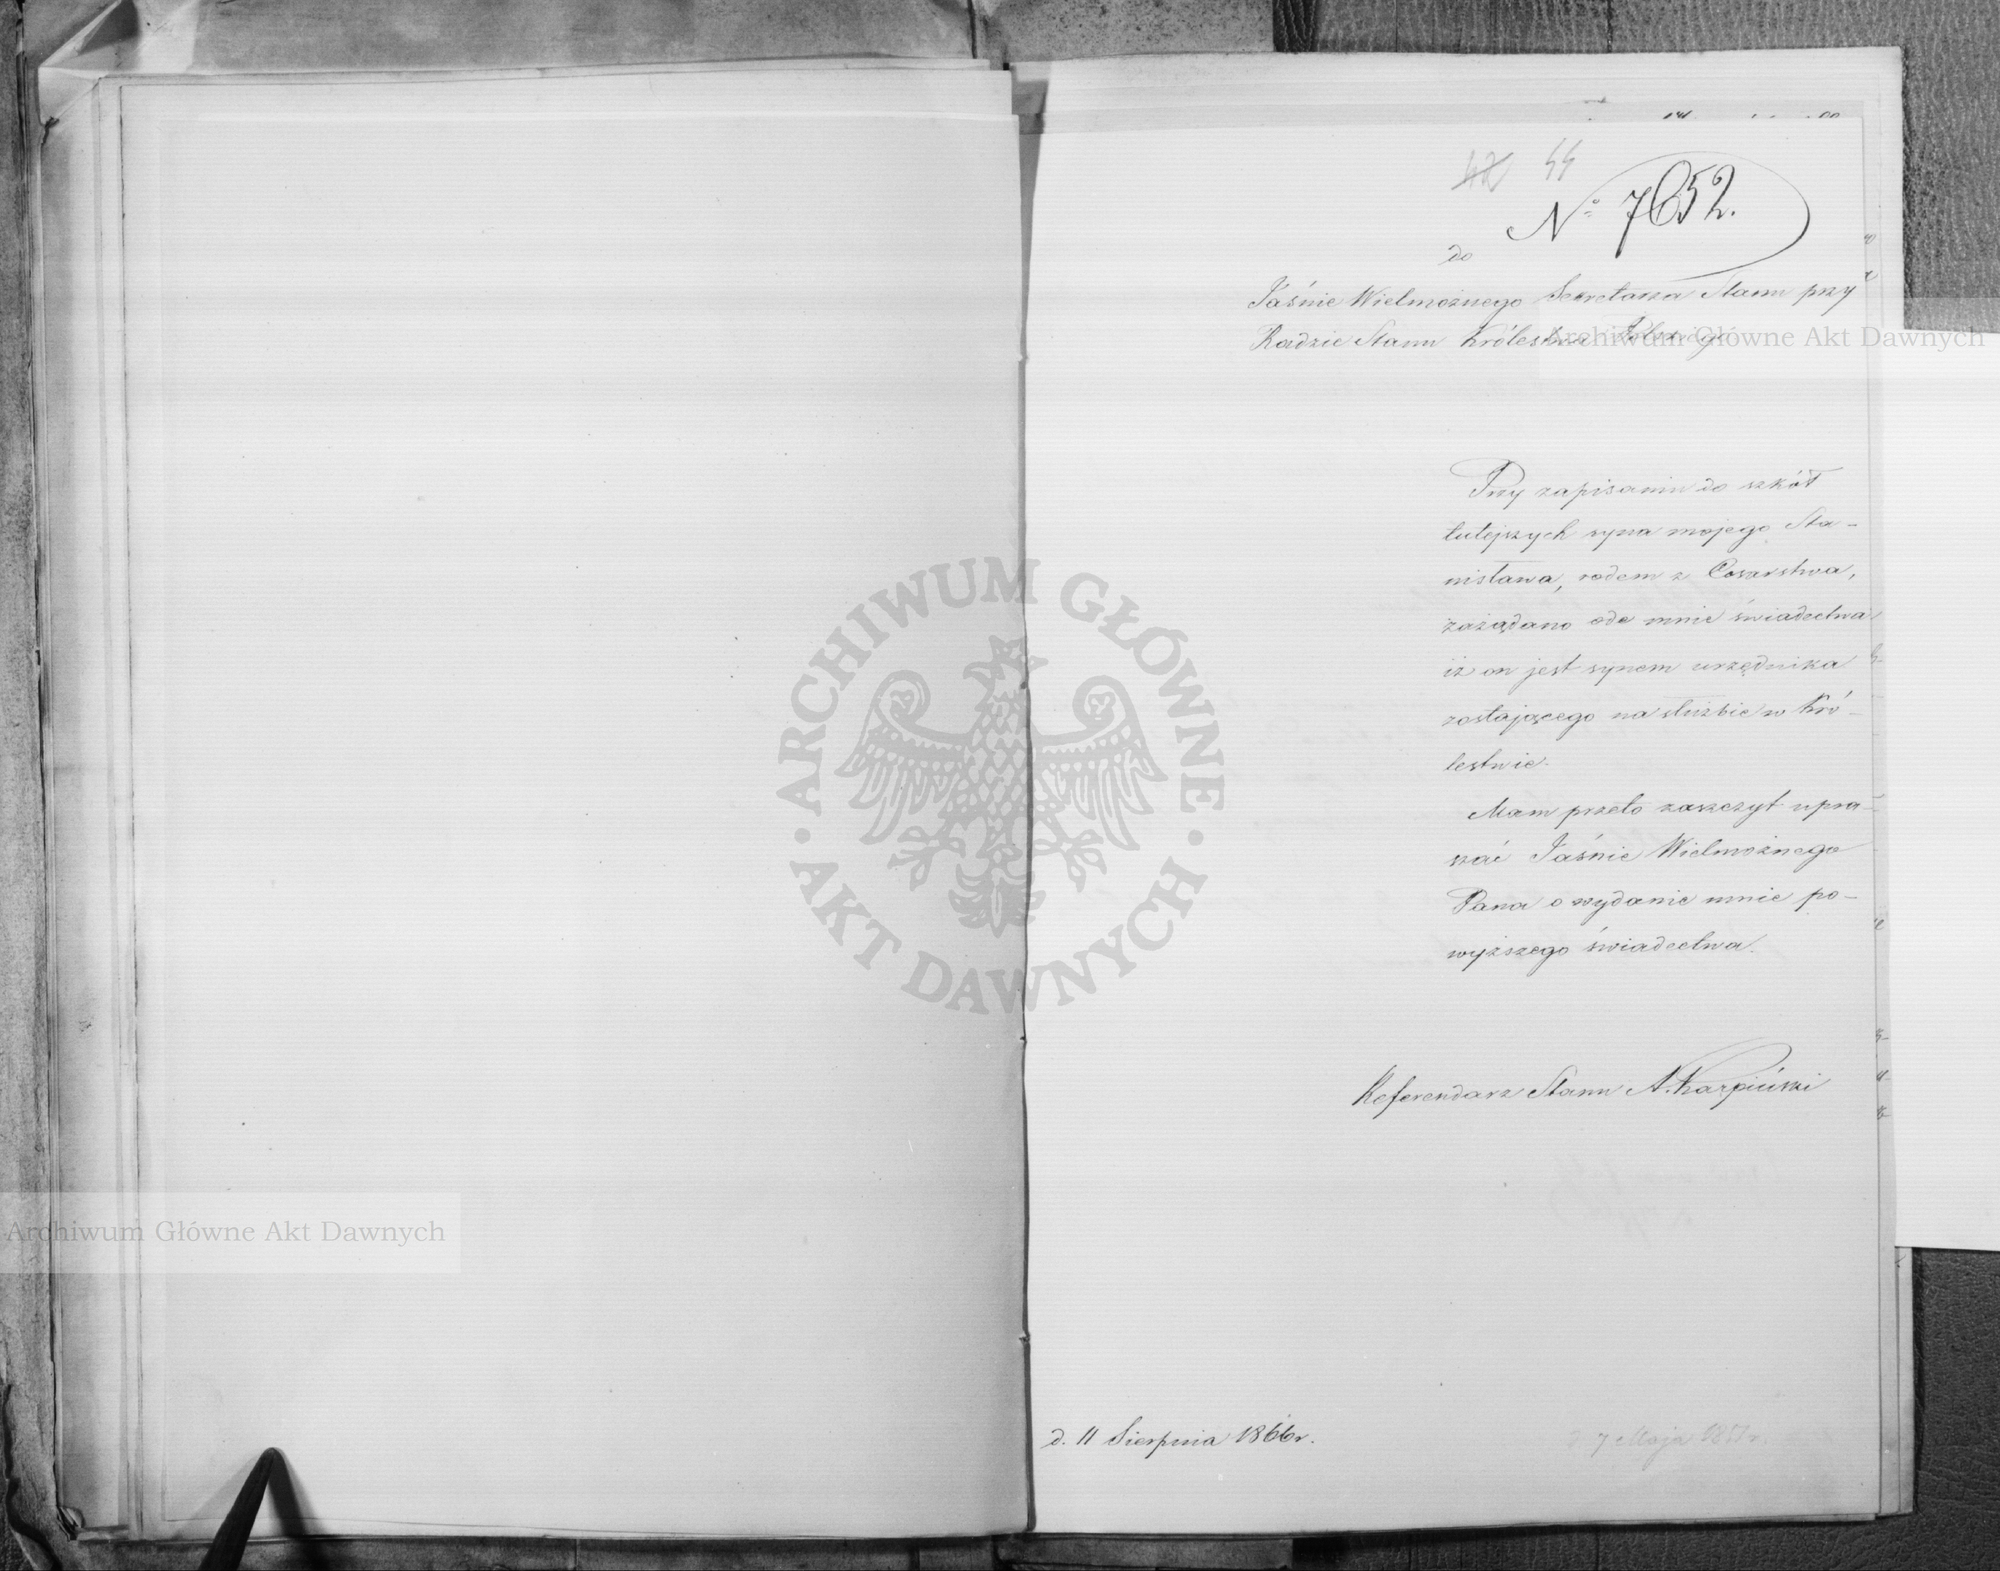 42 44
№ 7652.
do
Jaśnie Wielmożnego Sekretarza Stanu przy
Radzie Stanu Królestwa Polskiego
Archiwum Główne Akt Dawnych
Przy zapisaniu do szkół
tutejszych syna mojego Sta-
nisława, rodem z Cesarstwa,
zażądano ode mnie świadectwa
iż on jest synem urzędnika
zostającego na służbie w Kró-
lestwie.
Mam przeto zaszczyt upra-
szać Jaśnie Wielmożnego
Pana o wydanie mnie po-
wyższego świadectwa.
Referendarz Stanu A. Karpiński
d. 11 Sierpnia 1866 r.
7 Maja
ARCHIWUM GŁÓWNE
AKT DAWNYCH
Archiwum Główne Akt Dawnych